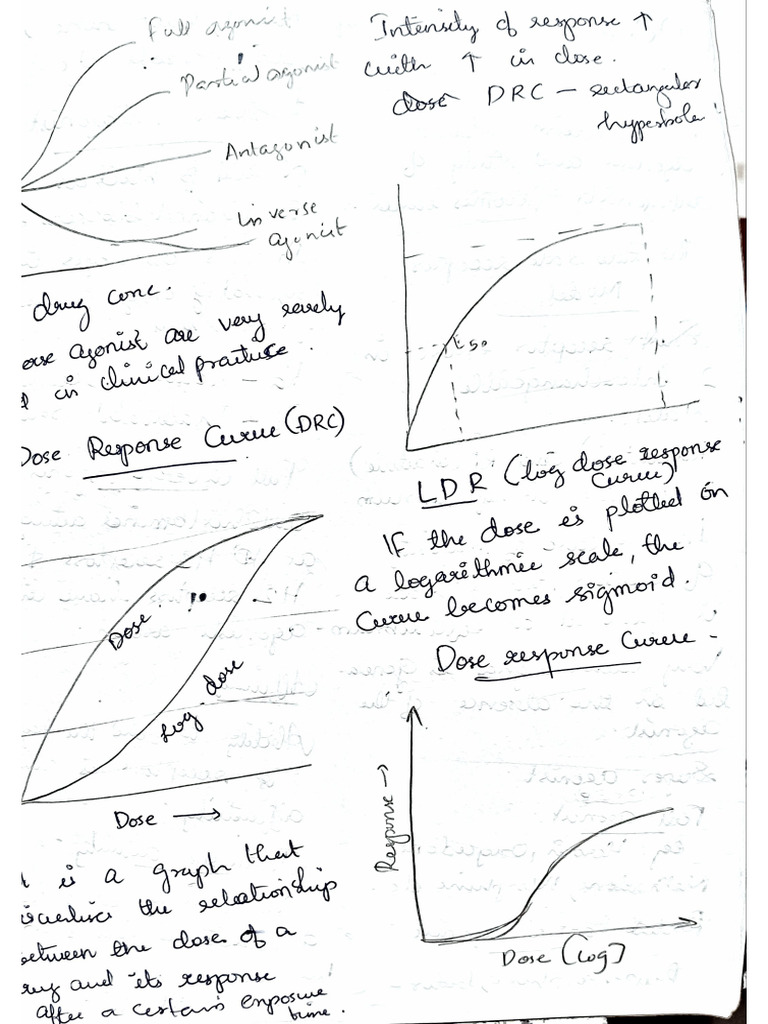 Full agonist
Partial agonist
Antagonist
Inverse
agonist
drug conc.
agonist are very rarely
in clinical practice.
Dose Response Curve (DRC)
Dose
Log dose
Dose →
is a graph that
the relationship
between the dose of a
and its response
after a certain exposure
time.
Intensity of response ↑
with ↑ in dose.
dose DRC – rectangular
hyperbole
50
LDR (log dose response
Curve)
If the dose is plotted on
a logarithmic scale, the
Curve becomes sigmoid.
Dose response Curve -
Response →
Dose (log)